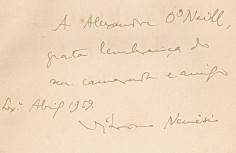 A Alexandre O'Neill,
grata lembrança do
seu camarada e amigo
Lxª. Abril 1959.
Vitorino Nemésio